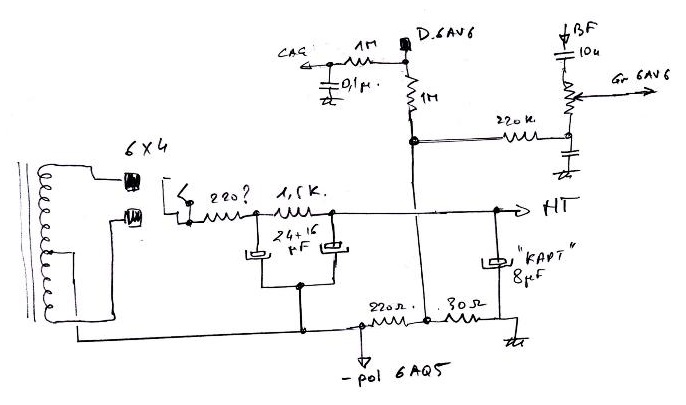 D.6AV6
BF
1M
10n
CAG
Gr 6AV6
0,1µ.
1M
220K.
6X4
220?
1,5K.
HT
24+16
µF
"KAPT"
8µF
220Ω.
30Ω
-pol 6AQ5